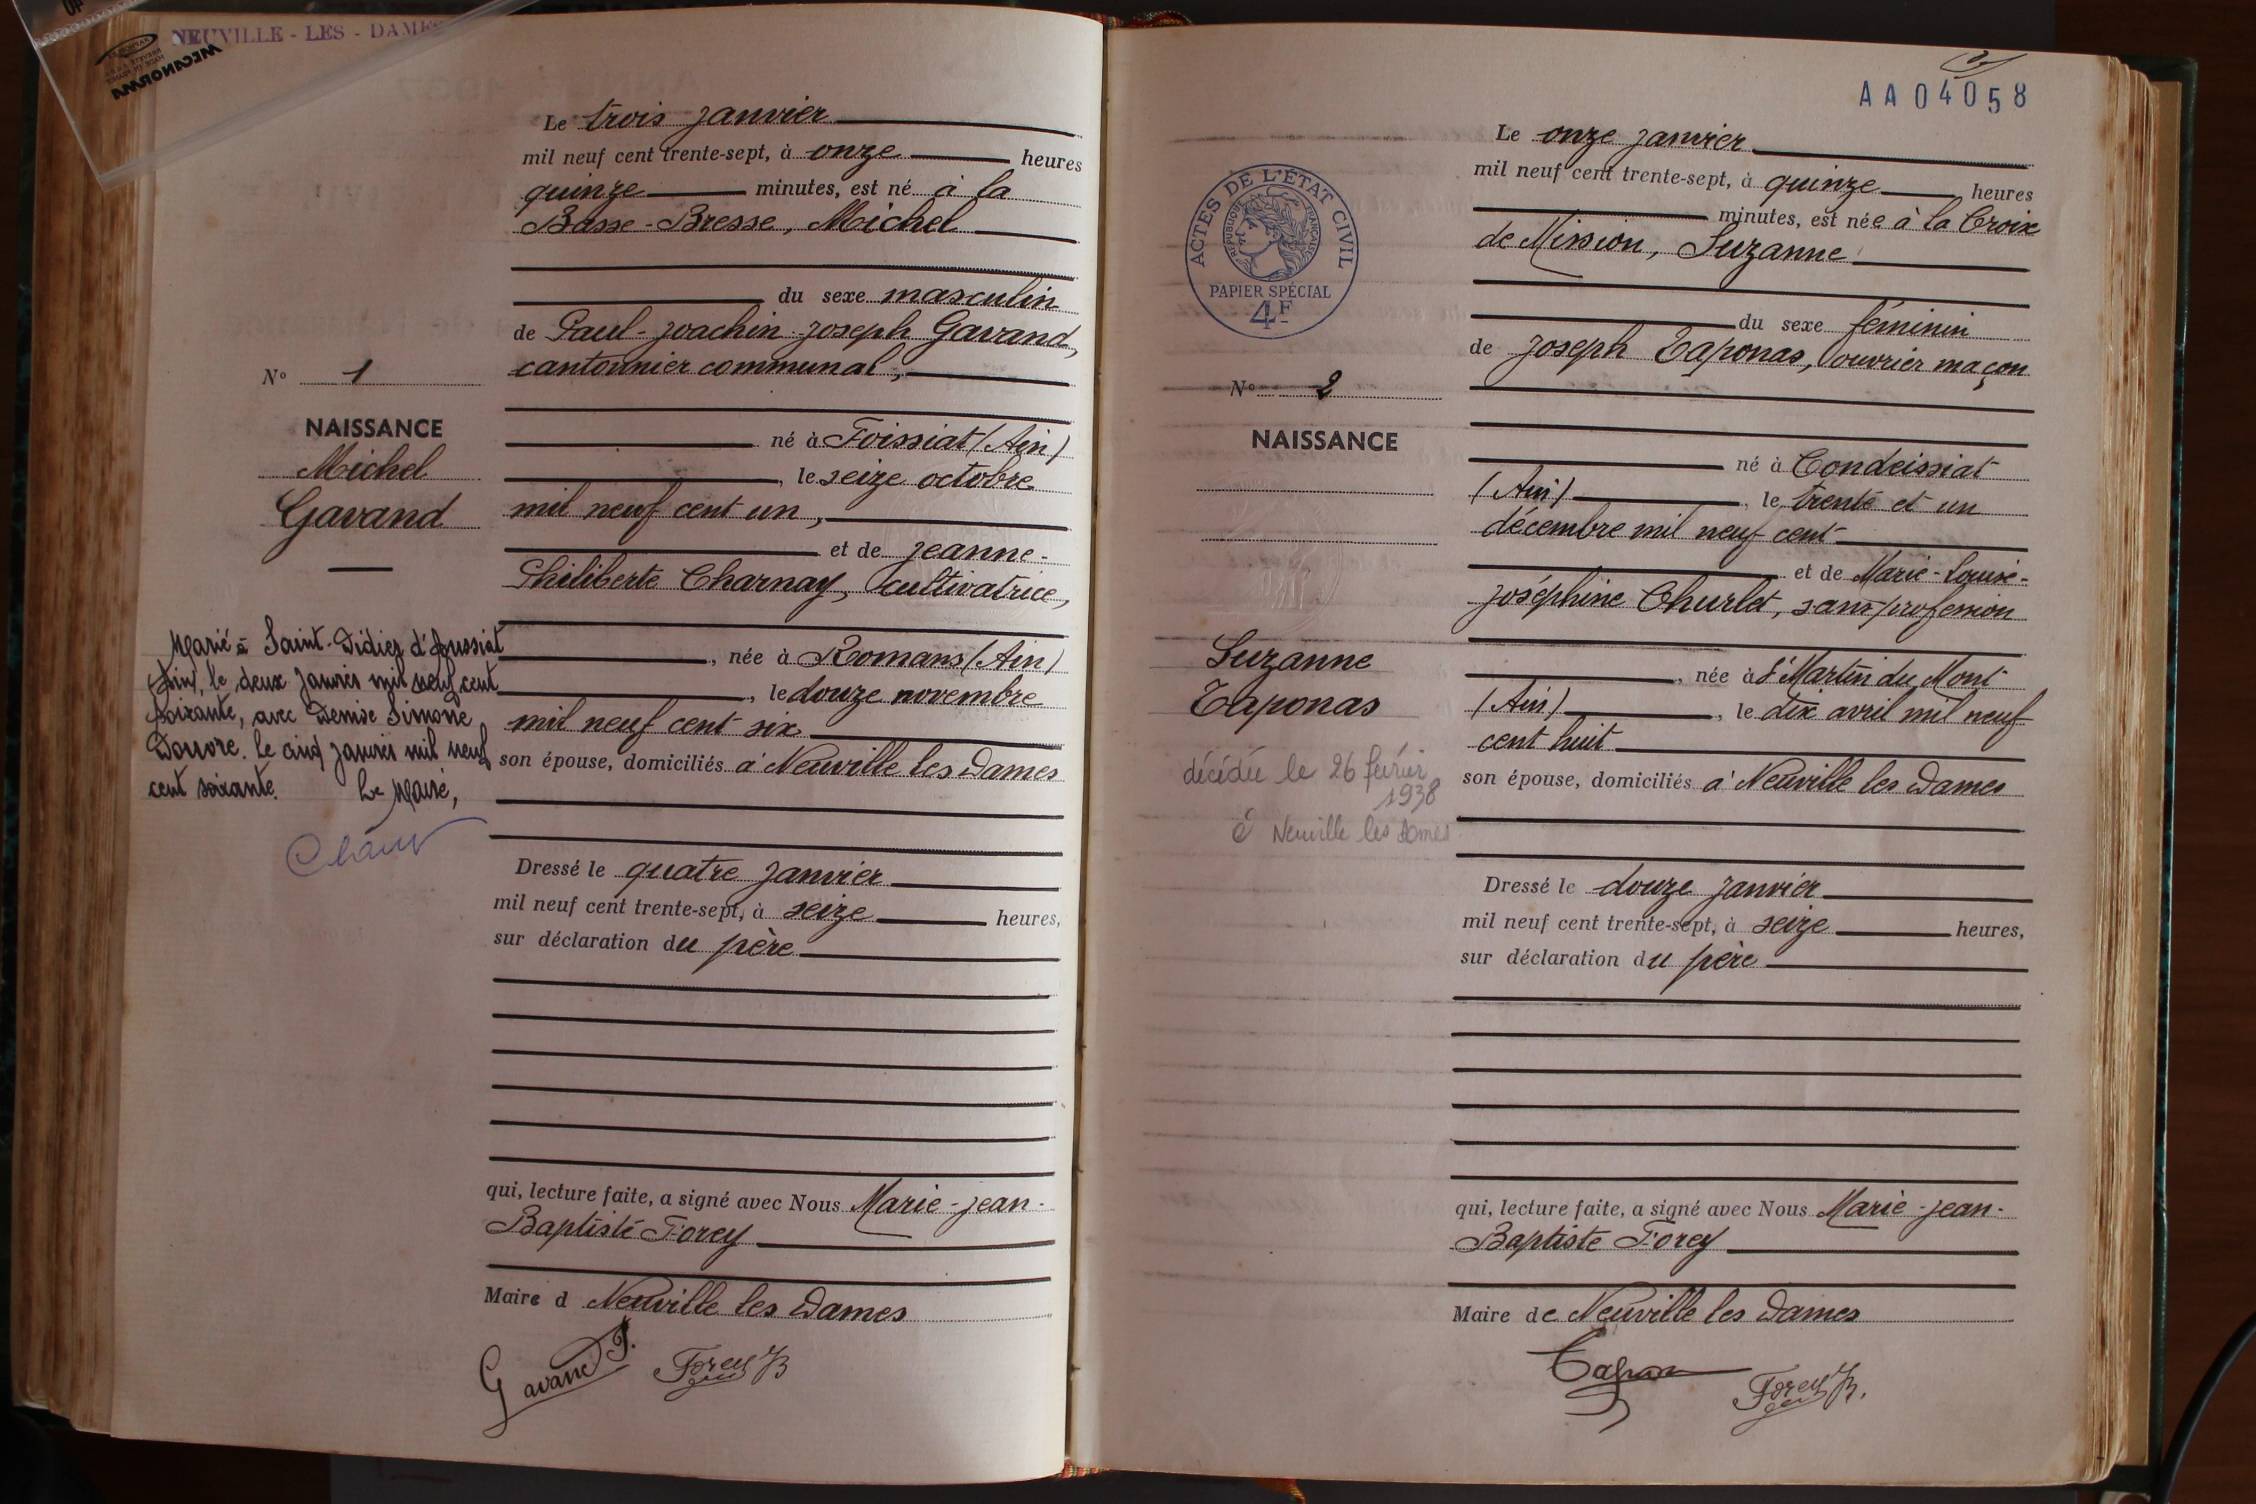 NEUVILLE - LES - DAMES
MECANORMA
Le trois janvier
mil neuf cent trente-sept, à onze heures
quinze minutes, est né à la
Basse-Bresse, Michel
du sexe masculin
de Paul-Joachin-Joseph Gavand,
cantonnier communal,
né à Foissiat (Ain)
, le seize octobre
mil neuf cent un,
et de Jeanne-
Philiberte Charnay, cultivatrice,
, née à Romans (Ain)
, le douze novembre
mil neuf cent six
son épouse, domiciliés à Neuville les Dames
Dressé le quatre janvier
mil neuf cent trente-sept, à seize heures,
sur déclaration du père
qui, lecture faite, a signé avec Nous Marie-Jean-
Baptiste Forey
Maire d Neuville les Dames
Gavand P. Forey JB
N° 1
NAISSANCE
Michel
Gavand
Marié à Saint-Didier d'Aussiat
(Ain), le deux janvier mil neuf cent
soixante, avec Denise Simone
le cinq janvier mil neuf
cent soixante. Le Maire,
AA04058
ACTES DE L'ÉTAT CIVIL
RÉPUBLIQUE FRANÇAISE
PAPIER SPÉCIAL
4F
N° 2
NAISSANCE
Suzanne
Taponas
décédée le 26 février
1938
à Neuville les Dames
Le onze janvier
mil neuf cent trente-sept, à quinze heures
minutes, est née à la Croix
de Mission, Suzanne
du sexe féminin
de Joseph Taponas, ouvrier maçon
né à Condeissiat
(Ain) , le trente et un
décembre mil neuf cent
et de Marie-Louise-
Joséphine Churlet, sans profession
, née à St Martin du Mont
(Ain) , le dix avril mil neuf
cent huit
son épouse, domiciliés à Neuville les Dames
Dressé le douze janvier
mil neuf cent trente-sept, à seize heures,
sur déclaration du père
qui, lecture faite, a signé avec Nous Marie-Jean-
Baptiste Forey
Maire de Neuville les Dames
Forey JB.